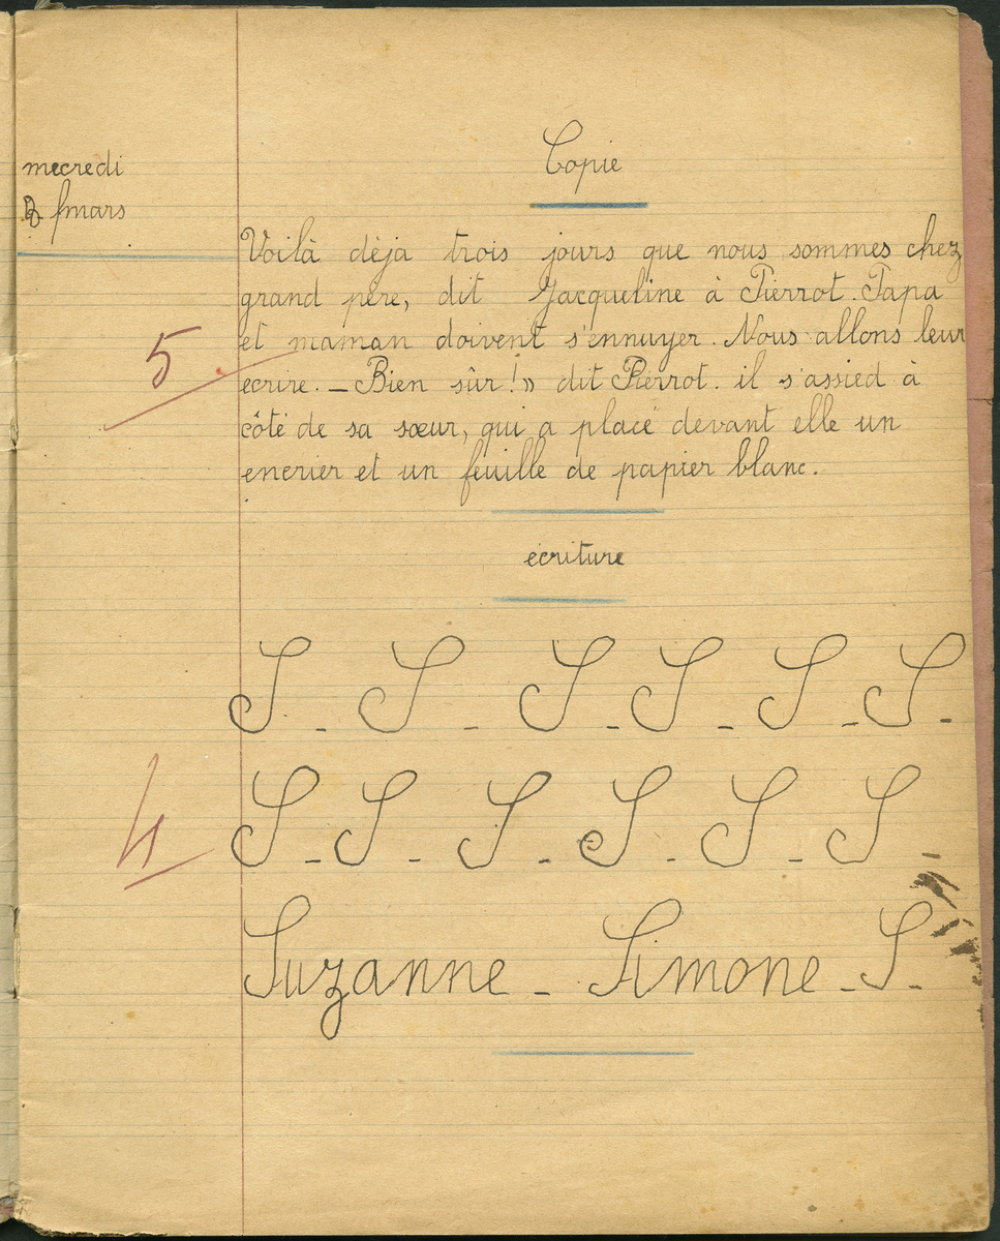 Copie
mecredi
mars
Voilà dèja trois jours que nous sommes chez
grand père, dit Jacqueline à Pierrot. Papa
et maman doivent s'ennuyer. Nous allons leur
5
ecrire. _ Bien sûr ! » dit Pierrot. il s'assied à
côté de sa sœur, qui a placé devant elle un
encrier et un feuille de papier blanc.
écriture
S _ S _ S _ S _ S _ S _
4
S _ S _ S _ S _ S _ S _
Suzanne _ Simone _ S _